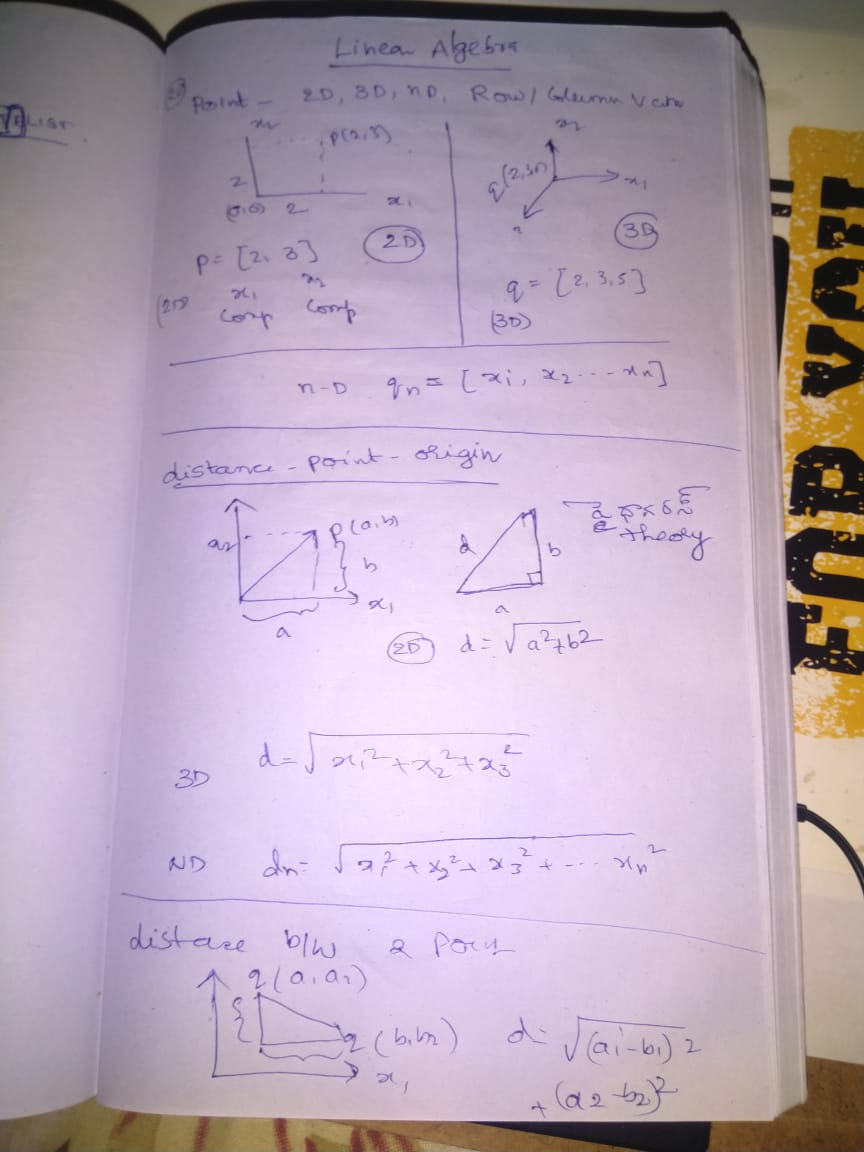 Linear Algebra
Point - 2D, 3D, nD, Row/Column Vector
LIST
x2
P(2,3)
2
(0,0) 2 x1
2D
P = [2, 3]
x1 x2
(2D) comp comp
x2
q(2,3,5)
x1
3D
q = [2,3,5]
(3D)
n-D qn = [xi, x2 ... xn]
distance - point - origin
P(a,b)
b
x1
a
d b
a
theory
2D d = √a²+b²
3D d = √x1²+x2²+x3²
ND dn = √x1²+x2²+x3²+ ... xn²
distace b/w 2
q(a1a2)
q(b1b2)
x1
d = √(a1-b1)2
+(a2-b2)²
FOR YOU